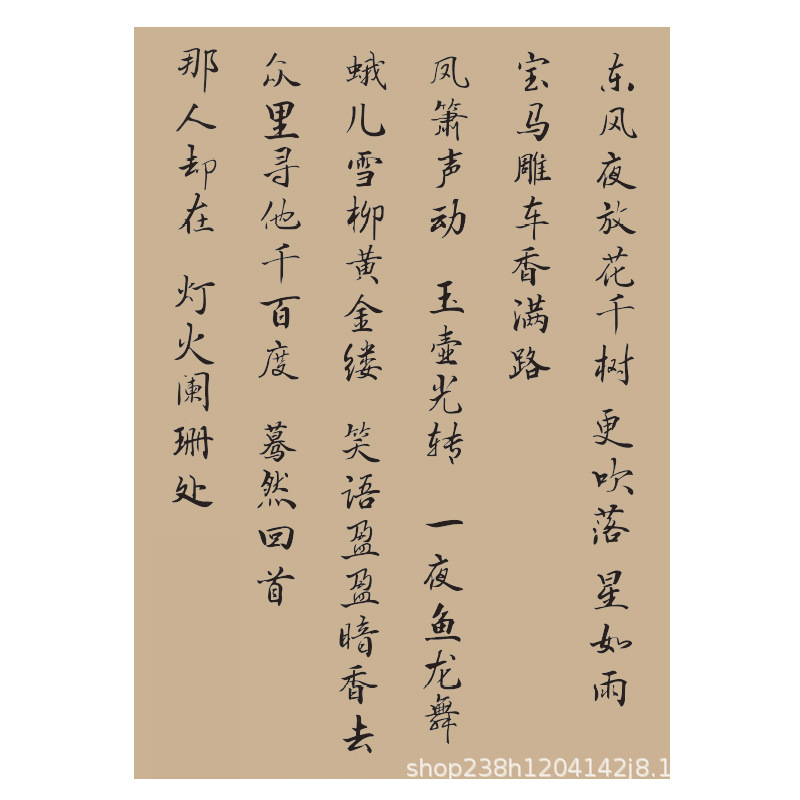 东风夜放花千树 更吹落 星如雨
宝马雕车香满路
凤簫声动 玉壶光转 一夜鱼龙舞
蛾儿雪柳黄金缕 笑语盈盈暗香去
众里寻他千百度 蓦然回首
那人却在 灯火阑珊处
shop238h1204142j8.1